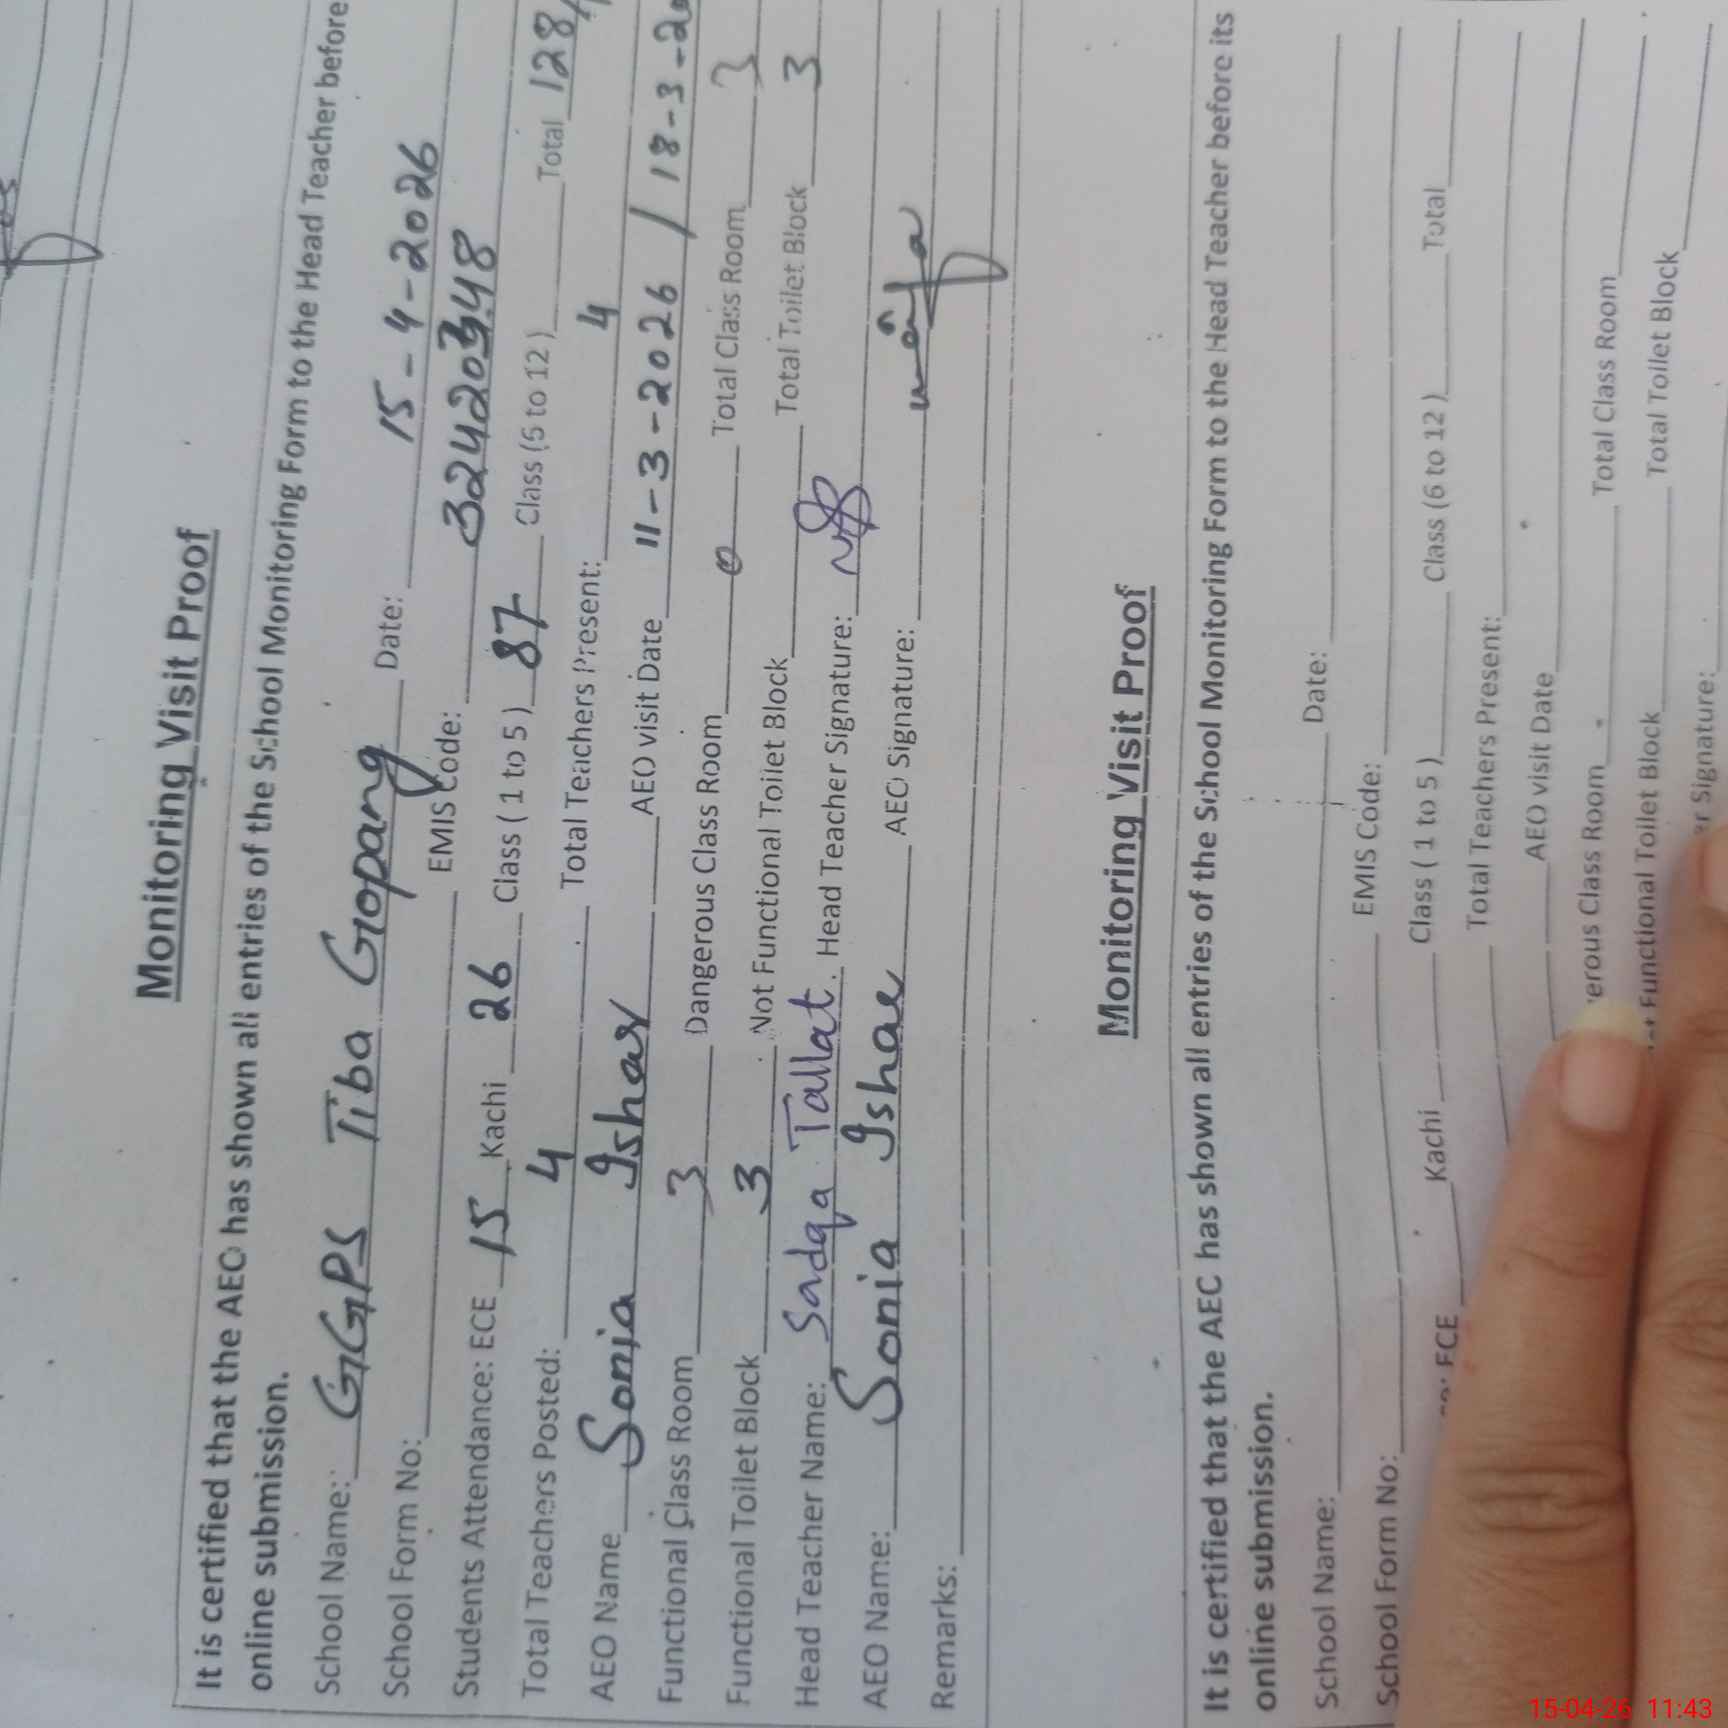 Monitoring Visit Proof
It is certified that the AEO has shown all entries of the School Monitoring Form to the Head Teacher before
online submission.
School Name: GGPS Tiba Gopang Date: 15-4-2026
School Form No: EMIS Code: 32420348
Students Attendance: ECE 15 Kachi 26 Class ( 1 to 5 ) 87 Class (6 to 12 ) Total 128
Total Teachers Posted: 4 Total Teachers Present: 4
AEO Name Sonia Ishaq AEO visit Date 11-3-2026 / 18-3-20
Functional Class Room 3 Dangerous Class Room 0 Total Class Room 3
Functional Toilet Block 3 Not Functional Toilet Block Total Toilet Block 3
Head Teacher Name: Sadqa Tallat. Head Teacher Signature:
AEO Name: Sonia Ishaq AEO Signature:
Remarks:
Monitoring Visit Proof
It is certified that the AEO has shown all entries of the School Monitoring Form to the Head Teacher before its
online submission.
School Name: Date:
School Form No: EMIS Code:
ECE Kachi Class ( 1 to 5 ) Class (6 to 12 ) Total
Total Teachers Present:
AEO visit Date
erous Class Room Total Class Room
Functional Toilet Block Total Toilet Block
er Signature:
15-04-26 11:43